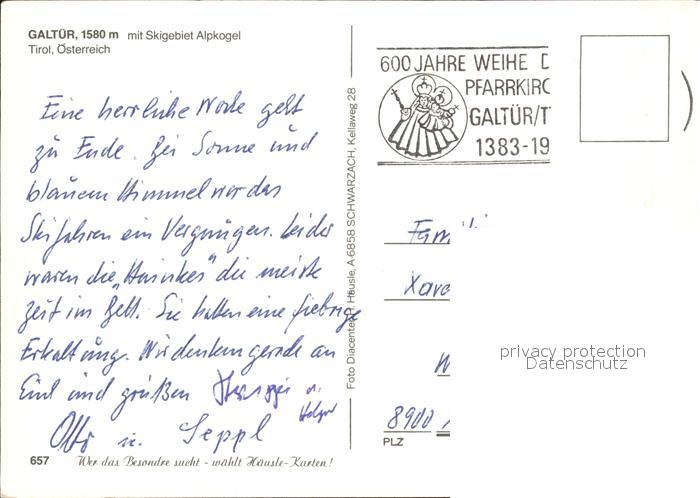 GALTÜR, 1580 m mit Skigebiet Alpkogel
Tirol, Österreich
Eine herrliche Woche geht
zu Ende. Bei Sonne und
blauem Himmel war das
Skifahren ein Vergnügen. Leider
waren die "        " die meiste
Zeit im Bett. Sie hatten eine fiebrige
Erkältung. Wir denken gerade an
Euch und grüßen
Otto u. Seppl
657 Wer das Besondre sucht - wählt Häusle-Karten!
Foto Diacenter R. Häusle, A-6858 SCHWARZACH, Kellaweg 28
600 JAHRE WEIHE D
PFARRKIRC
GALTÜR/T
1383-19
Fami
Xave
8900
PLZ
privacy protection
Datenschutz